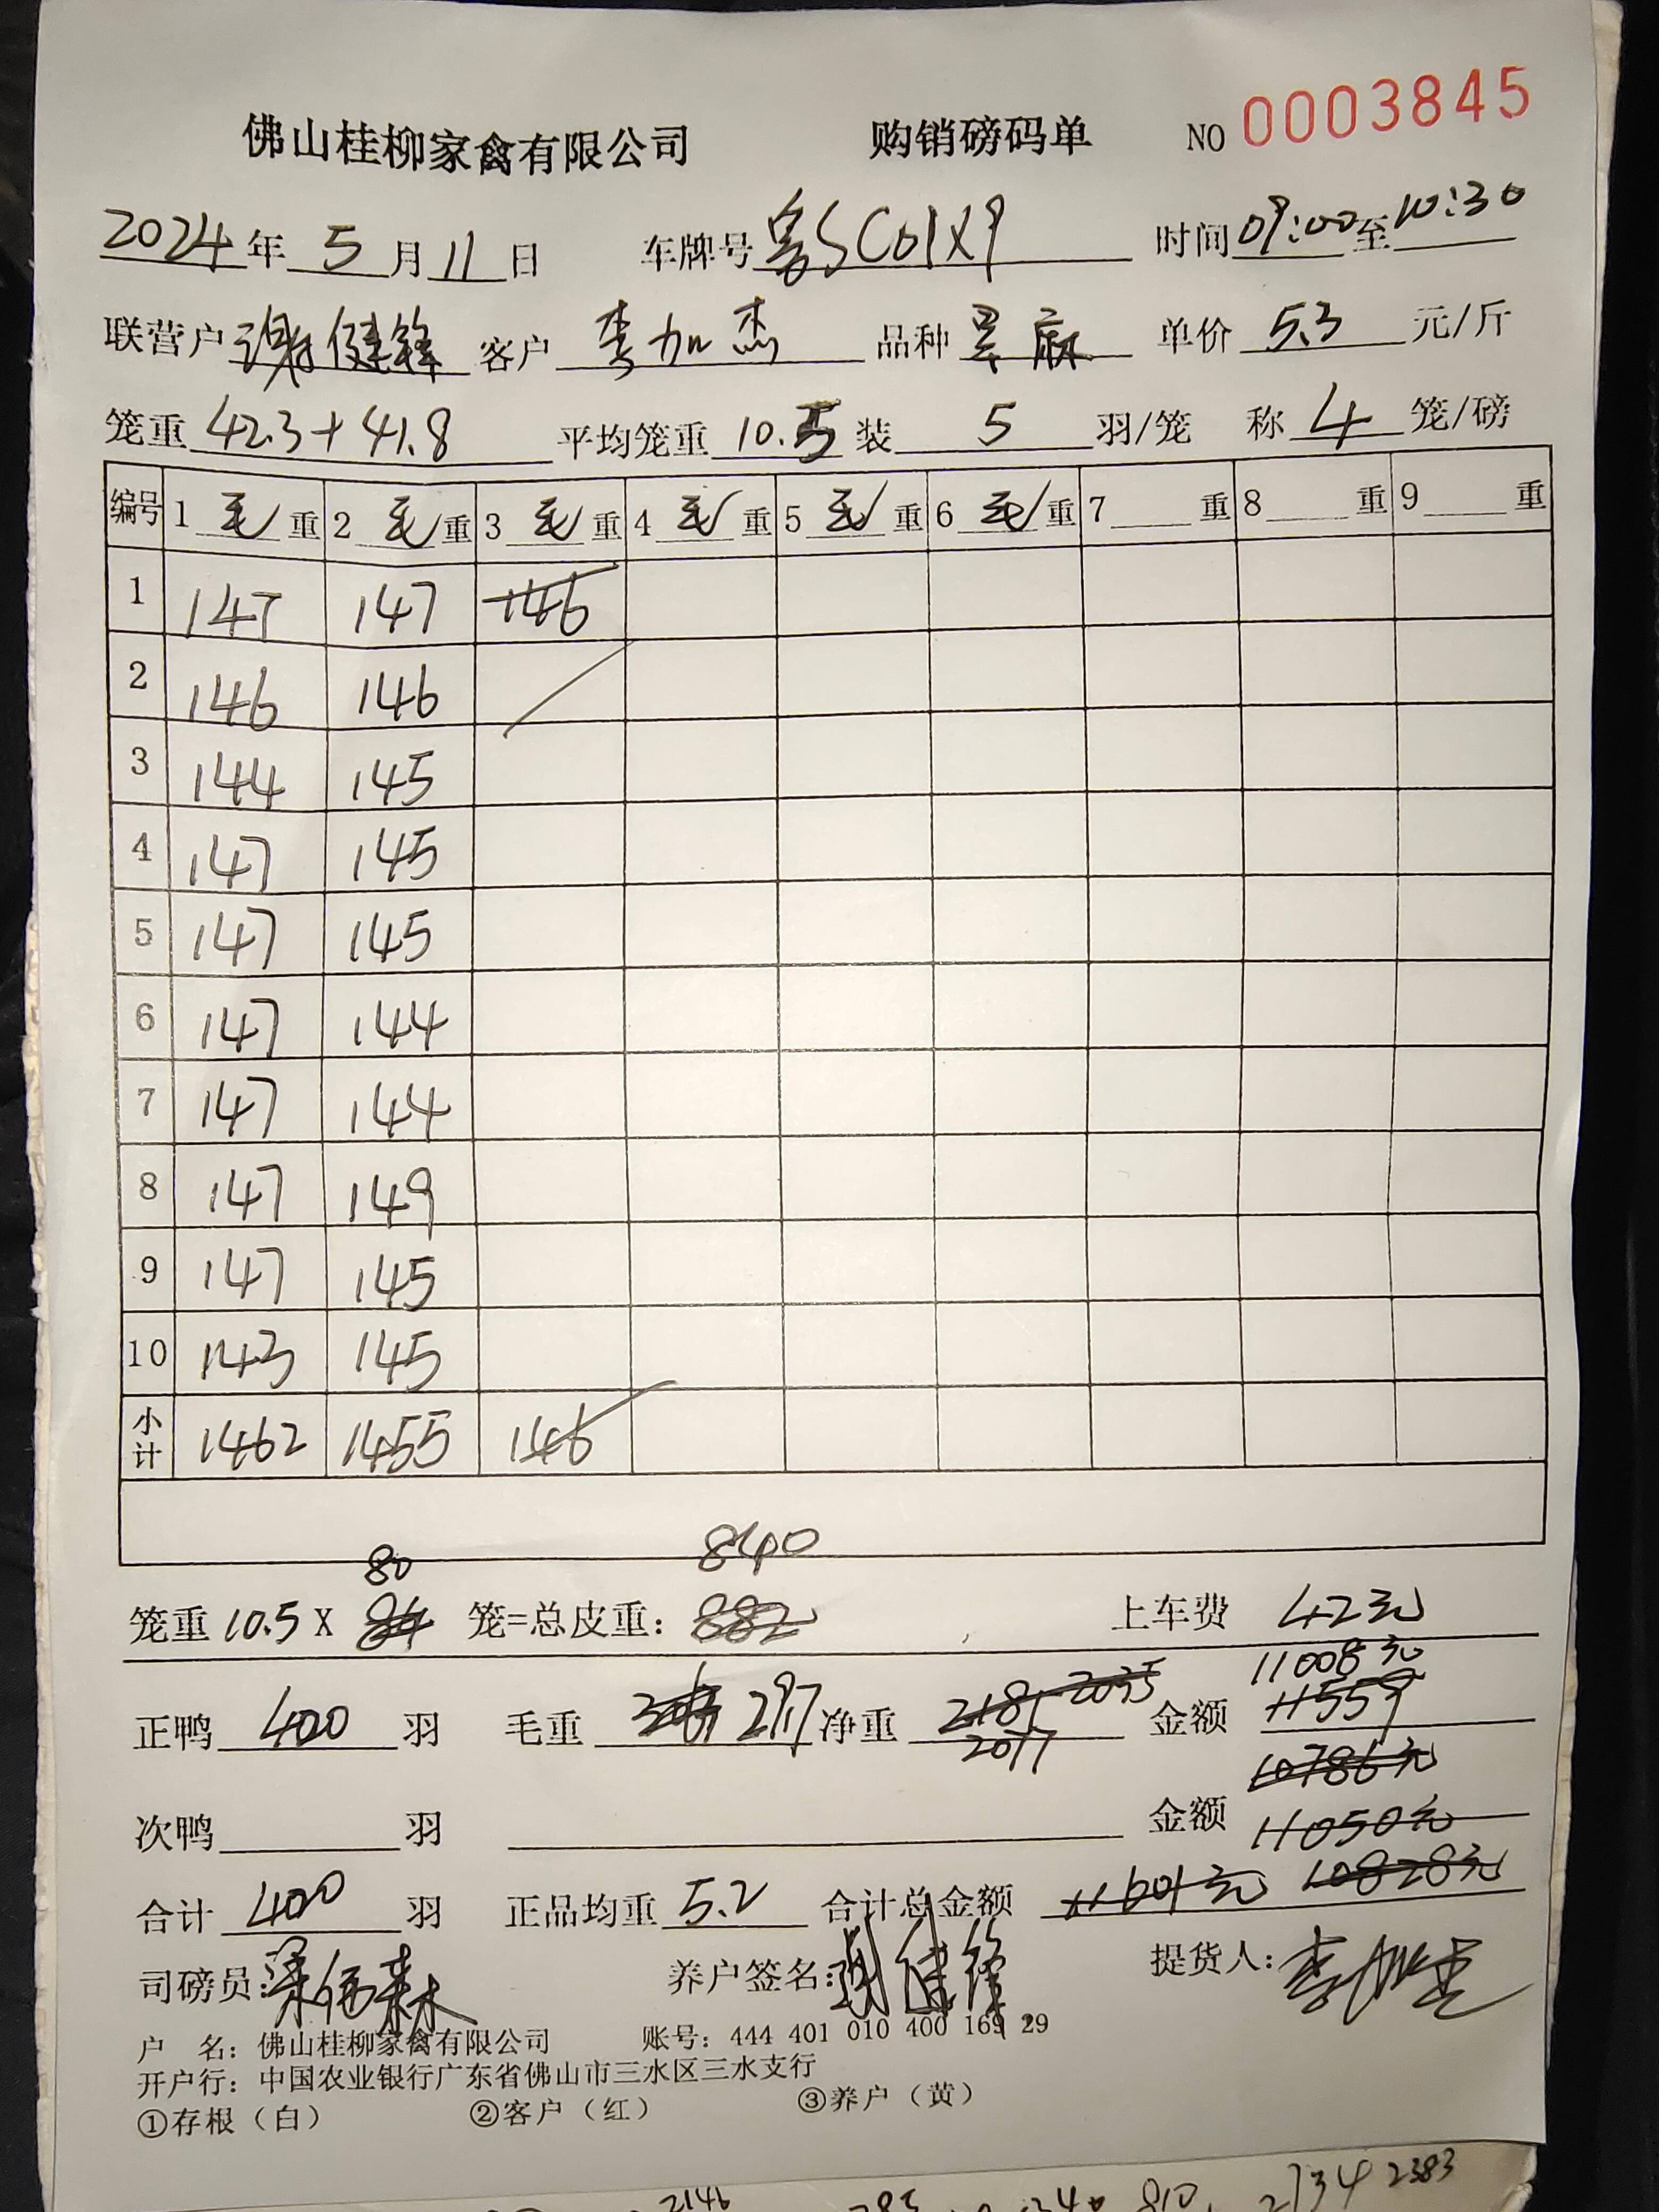 佛山桂柳家禽有限公司 购销磅码单 NO 0003845
2024年5月11日 车牌号粤SC01X9 时间09:00至10:30
联营户谢健锋 客户李加杰 品种 麻 单价5.3元/斤
笼重42.3+41.8 平均笼重10.5装5羽/笼 称4笼/磅
编号 1毛重 2毛重 3毛重 4毛重 5毛重 6毛重 7重 8重 9重
1 147 147 146
2 146 146
3 144 145
4 147 145
5 147 145
6 147 144
7 147 144
8 147 149
9 147 145
10 143 145
小计 1462 1455 146
80 840
笼重10.5X 84 笼=总皮重: 882 上车费 42元
11008元
正鸭400羽 毛重 3063 2917 净重 2181 2035 金额 11559
2077 10786元
次鸭 羽 金额 11050元
合计400羽 正品均重5.2 合计总金额 11601元 10828元
司磅员: 养户签名:谢健锋 提货人:李加杰
户 名: 佛山桂柳家禽有限公司 账号: 444 401 010 400 169 29
开户行: 中国农业银行广东省佛山市三水区三水支行
①存根(白) ②客户(红) ③养户(黄)
2146 810 2134 2383